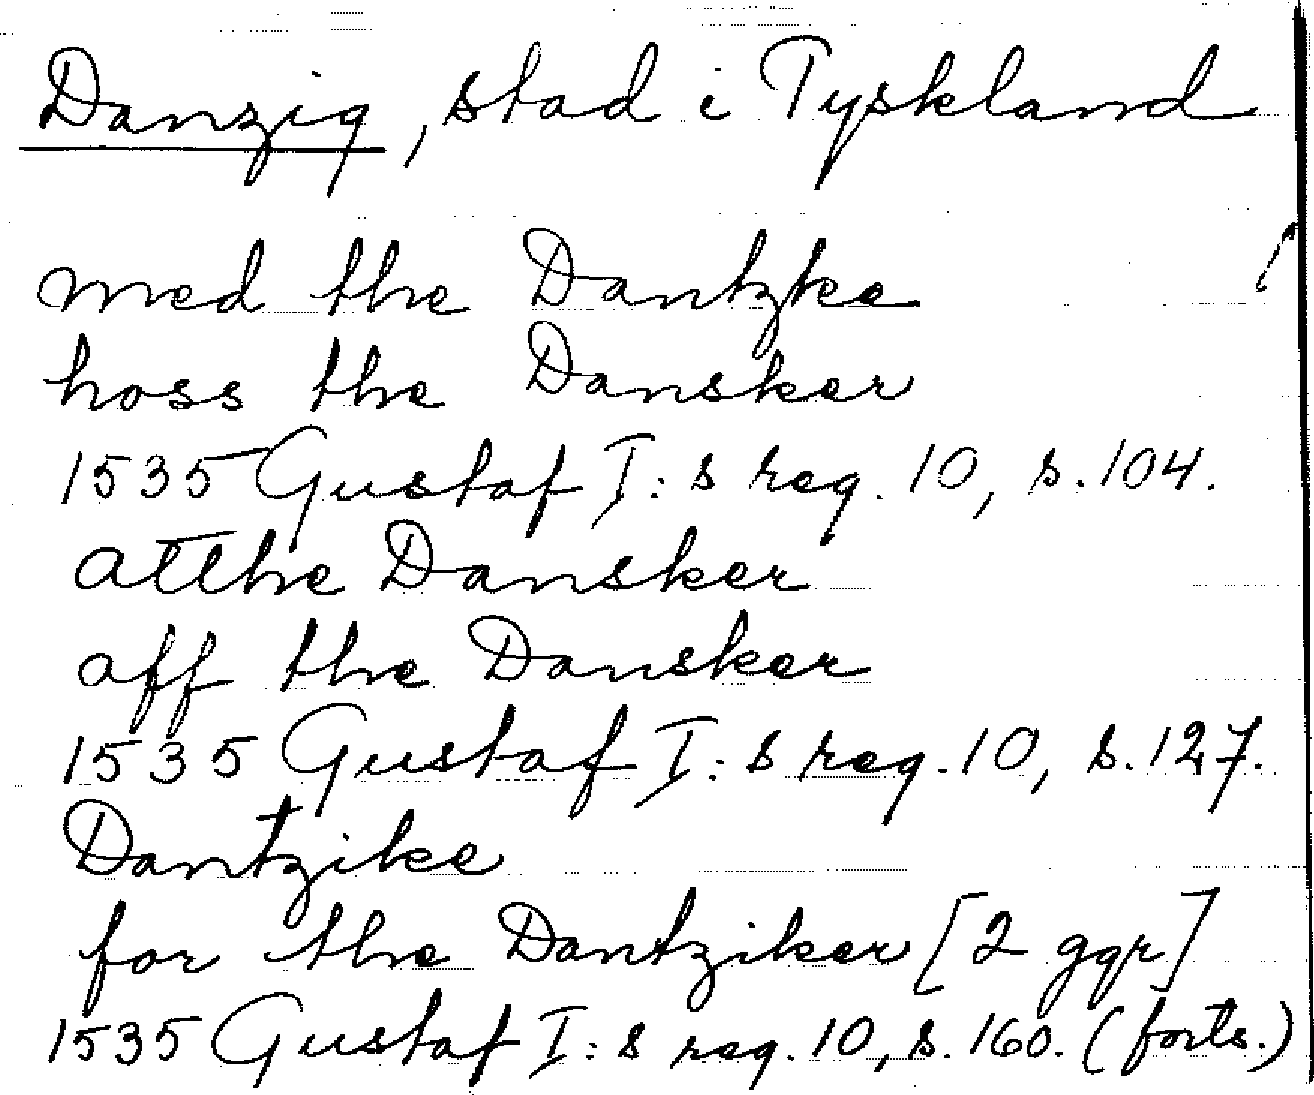 Danzig, stad i Tyskland
med the Dantzke
hoss the Dansker
1535 Gustaf I:s reg. 10, s. 104.
atthe Dansker
aff the Dansker
1535 Gustaf I:s reg. 10, s. 127.
Dantzike
for the Dantziker [2 ggr]
1535 Gustaf I:s reg. 10, s. 160. (forts.)